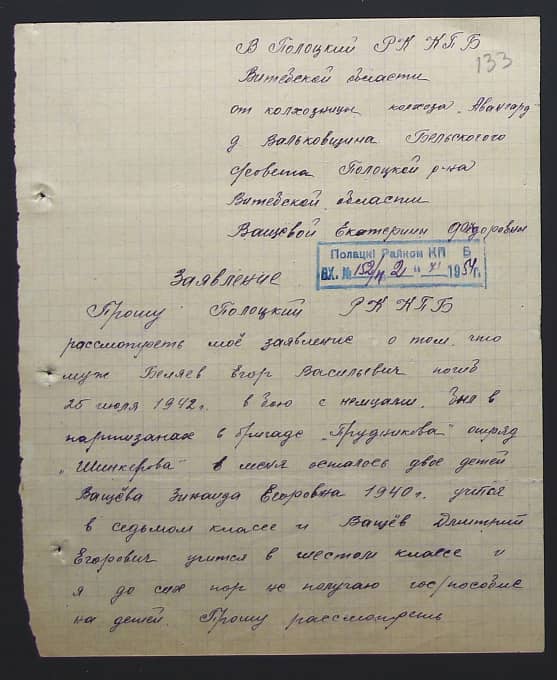 В Полоцкий РК КПБ
133
Витебской области
от колхозницы колхоза "Авангард"
д Вальковщина Бельского
с/совета Полоцкой р-на
Витебской области
Ващёвой Екатерин Фёдоровны
Полацкі Райком КП Б
ВХ. № 152/ 2 " XI 1954г.
Заявление
Прошу Полоцкий РК КПБ
рассмотреть моё заявление о том, что
муж Беляев Егор Васильевич погиб
25 июля 1942г. в бою с немцами. был в
партизанах в бригаде "Прудникова" отряд
"Шинкерова" в меня осталось двое детей
Ващёва Зинаида Егоровна 1940г. учится
в седьмом классе и Ващёв Дмитрий
Егорович учится в шестом классе и
я до сих пор не получаю гос/пособие
на детей. Прошу рассмотреть